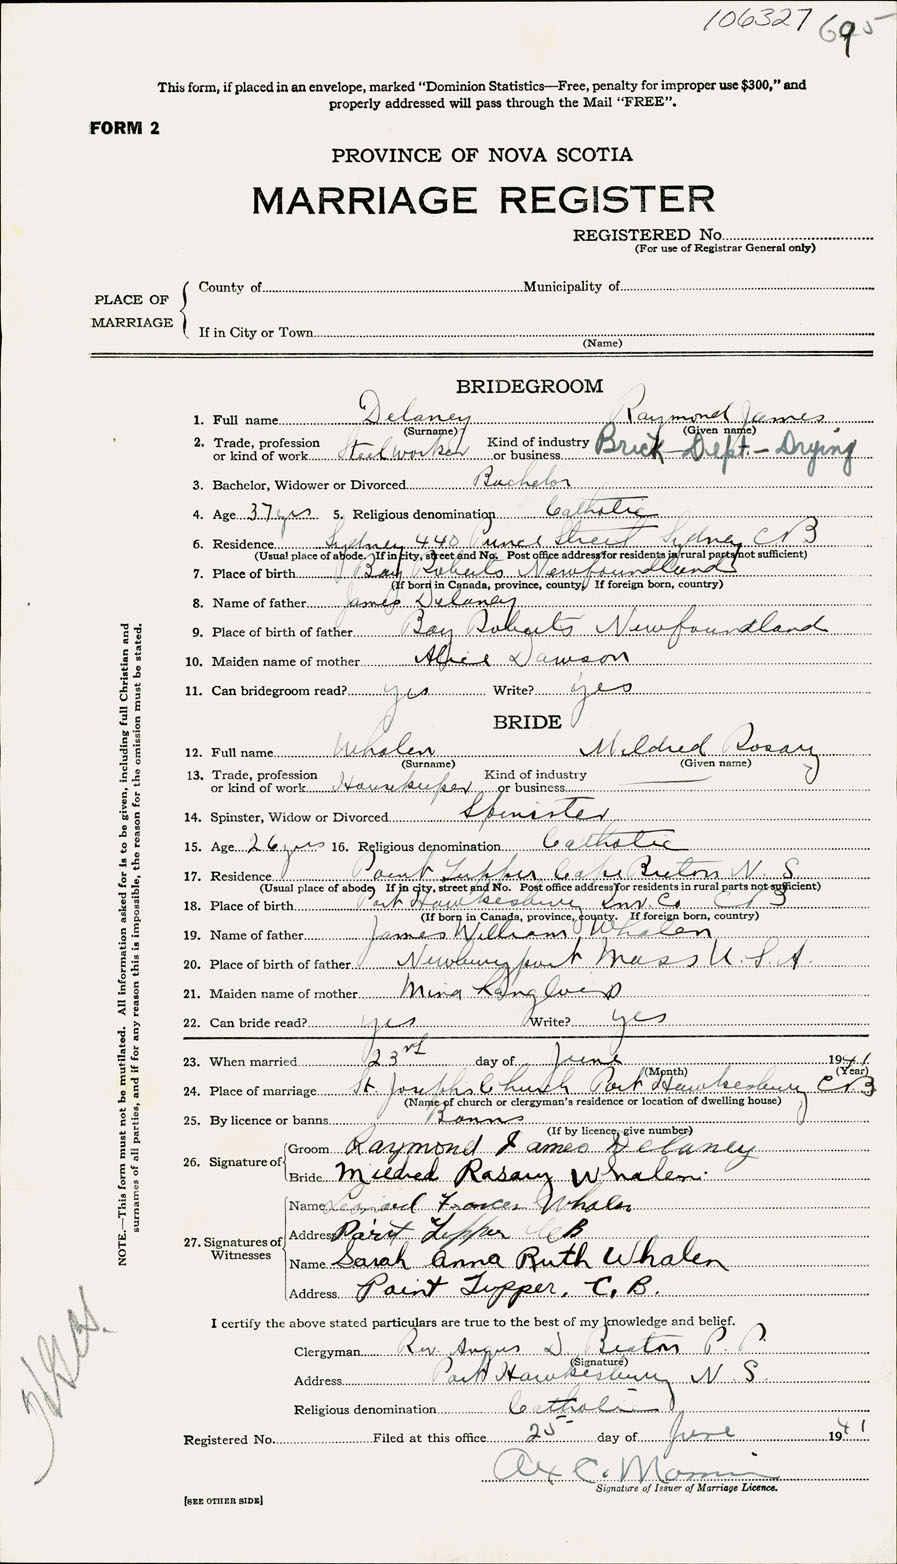 106327 695
This form, if placed in an envelope, marked "Dominion Statistics—Free, penalty for improper use $300," and
properly addressed will pass through the Mail "FREE".
FORM 2
PROVINCE OF NOVA SCOTIA
MARRIAGE REGISTER
REGISTERED No.
(For use of Registrar General only)
PLACE OF MARRIAGE
County of Municipality of
If in City or Town
(Name)
BRIDEGROOM
1. Full name Delaney Raymond James
(Surname) (Given name)
2. Trade, profession or kind of work Steelworker Kind of industry or business Brick Dept. - Drying
3. Bachelor, Widower or Divorced Bachelor
4. Age 37 yrs 5. Religious denomination Catholic
6. Residence Sydney 440 Street Sydney C B
(Usual place of abode. If in city, street and No. Post office address for residents in rural parts not sufficient)
7. Place of birth Bay Roberts Newfoundland
(If born in Canada, province, county. If foreign born, country)
8. Name of father James Delaney
9. Place of birth of father Bay Roberts Newfoundland
10. Maiden name of mother Alice Dawson
11. Can bridegroom read? yes Write? yes
BRIDE
12. Full name Whalen Mildred Rosary
(Surname) (Given name)
13. Trade, profession or kind of work Housekeeper Kind of industry or business
14. Spinster, Widow or Divorced Spinister
15. Age 26 yrs 16. Religious denomination Catholic
17. Residence Point Tupper Cape Breton N. S.
(Usual place of abode. If in city, street and No. Post office address for residents in rural parts not sufficient)
18. Place of birth Port Hawkesbury Inv. Co C B
(If born in Canada, province, county. If foreign born, country)
19. Name of father James William Whalen
20. Place of birth of father Newburyport Mass U. S. A.
21. Maiden name of mother Mina
22. Can bride read? yes Write? yes
23. When married 23rd day of June 1941
(Month) (Year)
24. Place of marriage St. Josephs Church Port Hawkesbury C B
(Name of church or clergyman's residence or location of dwelling house)
25. By licence or banns Banns
(If by licence, give number)
26. Signature of
Groom Raymond James Delaney
Bride Mildred Rosary Whalen.
27. Signatures of Witnesses
Name Leonard Frances Whalen
Address Point Tupper C B
Name Sarah Anna Ruth Whalen
Address Point Tupper, C, B.
I certify the above stated particulars are true to the best of my knowledge and belief.
Clergyman Rev. Angus D. Beaton P. P.
(Signature)
Address Port Hawkesbury N. S.
Religious denomination Catholic
Registered No. Filed at this office 25 day of June 1941
Alex C.
Signature of Issuer of Marriage Licence.
[SEE OTHER SIDE]
NOTE.—This form must not be mutilated. All information asked for is to be given, including full Christian and
surnames of all parties, and if for any reason this is impossible, the reason for the omission must be stated.